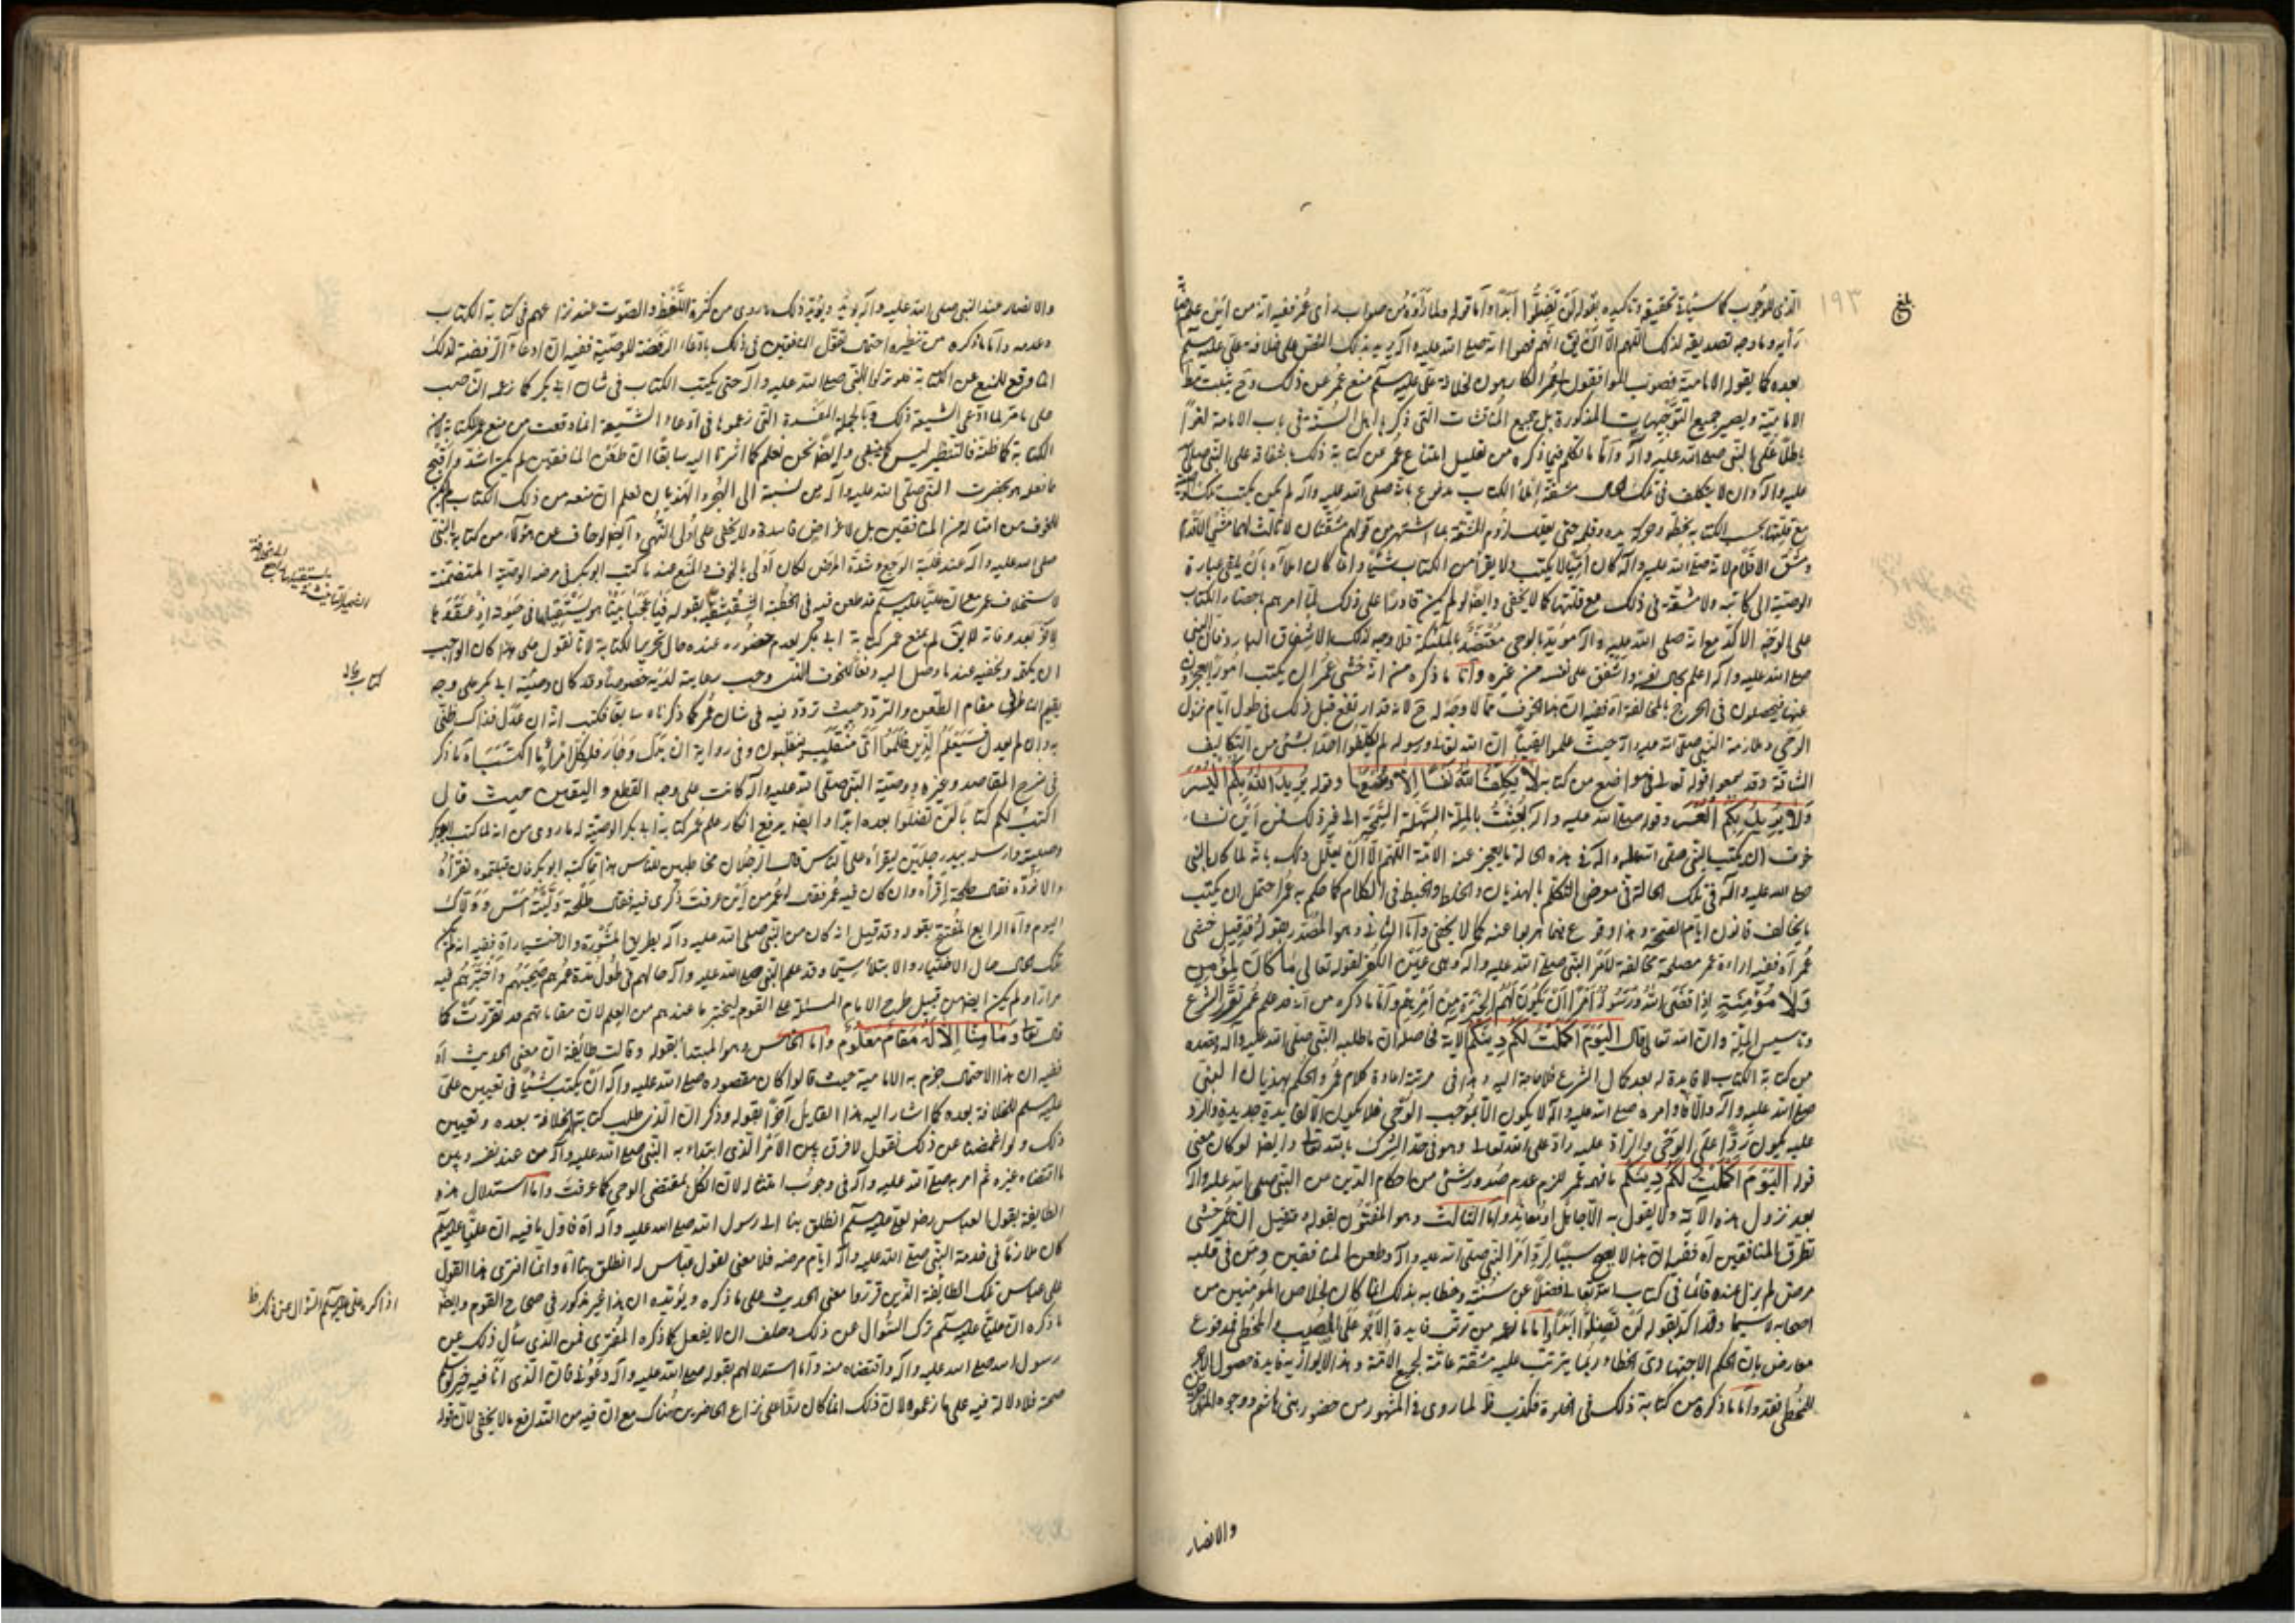 ١٩٣
بلغ
الذي للوجوب كما سيأتي تحقيقه وتأكيده بقوله لن تضلوا ابدا واما قوله ولما رأوه من صواب رأى عمر ففيه انه من اين علم
رأيه وما وجه تصديقه لذلك اللهم الا ان يق انهم فهموا انه صلى الله عليه وآله يريد بذلك النص على خلافة علي عليه السلم
بعده كما يقوله الامامية فصوبوا لموافقول عمر الكارهون لخلافة علي عليه السلم منع عمر عن ذلك وح يثبت
الامامية ويصير جميع التوجيهات المذكورة بل جميع المناقشات التي ذكرها اهل السنة في باب الامامة لغوا
باطلا على النبي صلى الله عليه وآله واما ما تكلم فيما ذكره من تعليل امتناع عمر من كتابة ذلك باشفاقه على النبي صلى الله
عليه وآله وان لا يتكلف في تلك الحال مشقة املاء الكتاب مدفوع بانه صلى الله عليه وآله لم يكن يكتب تلك
مع قلتها بحسب الكتابة بخطه وحركة يده وقلمه حتى يعقل لزوم المشقة بما اشتهر من قولهم مشقتان لا ثالث لهما مشي الاقدام
ومشق الاقلام لانه صلى الله عليه وآله كان اميا لا يكتب ولا يقرأ من الكتاب شيئا وانما كان املاؤه بأن يلقي عبارة
الوصية الى كاتبه ولا مشقة في ذلك مع قلتها كما لا يخفى وايضا لو لم يكن قادرا على ذلك لما امرهم باحضار الكتاب
على الوجه الآكد مع انه صلى الله عليه وآله مؤيد بالوحي معتضد بالملئكة فلا وجه لذلك الاشفاق البارد فان النبي
صلى الله عليه وآله اعلم بحال نفسه واشفق على نفسه من غيره واما ما ذكره من انه خشي عمر ان يكتب امورا يعجزون
عنها فيحصلون في الحرج بالمخالفة آه ففيه ان هذا الخوف مما لا وجه له ح لانه قد ارتفع قبل ذلك في طول ايام نزول
الوحي وملازمة النبي صلى الله عليه وآله حيث علموا يقينا ان الله تعالى ورسوله لم يكلفوا احدا بشئ من التكاليف
الشاقة وقد سمعوا قوله تعالى في مواضع من كتابه لا يكلف الله نفسا الا وسعها وقوله يريد الله بكم اليسر
ولا يريد بكم العسر وقوله صلى الله عليه وآله بعثت بالملة السهلة السمحة الى غير ذلك فمن اين نشأ
خوف ان يكتب النبي صلى الله عليه وآله في هذه الحالة ما يعجز عنه الامة اللهم الا ان يعلل ذلك بانه لما كان النبي
صلى الله عليه وآله في تلك الحالة في معرض التكلم بالهذيان والخلط والخبط في الكلام كما حكم به عمر احتمل ان يكتب
ما يخالف قانون ايام الصحة وهذا وقوع فيما هربوا عنه كما لا يخفى واما الثاني وهو المصدر بقوله وقد قيل خشي
عمر آه ففيه ارادة عمر مصلحة مخالفة لامر النبي صلى الله عليه وآله وهي عين الكفر لقوله تعالى ما كان لمؤمن
ولا مؤمنة اذا قضى الله ورسوله امرا ان يكون لهم الخيرة من امرهم واما ما ذكره من انه قد علم عمر تقرر الشرع
وتأسيس الملة وان الله تعالى قال اليوم اكملت لكم دينكم الآية فحاصله ان ما طلبه النبي صلى الله عليه وآله وقصده
من كتابة الكتاب لا فائدة له بعد كمال الشرع فلا حاجة اليه وهذا في مرتبة اعادة كلام عمر والحكم بهذيان النبي
صلى الله عليه وآله والا فاوامره صلى الله عليه وآله لا يكون الا بموجب الوحي فلا يكون الا لفايدة جديدة والراد
عليه يكون ردا على الوحي والراد عليه راد على الله تعالى وهو في حد الشرك بالله تعالى وايضا لو كان معنى
قوله اليوم اكملت لكم دينكم ما فهمه عمر للزم عدم صدور شئ من احكام الدين من النبي صلى الله عليه وآله
بعد نزول هذه الآية ولا يقول به الا جاهل او معاند واما الثالث وهو المعنون بقوله وقيل ان عمر خشي
تطرق المنافقين آه ففيه ان هذا لا يصح سببا لرد امر النبي صلى الله عليه وآله وطعن المنافقين ومن في قلبه
مرض لم يزل عنده قائما في كتاب الله تعالى فضلا عن سنته وخطابه بذلك انما كان لخلاص المؤمنين من
اصحابه لا سيما وقد اكد بقوله لن تضلوا ابدا واما ما زعمه من ترتب فايدة الاجر على المصيب والمخطئ فمدفوع
معارض بان الحكم الاجتهادي الخطاء ربما يترتب عليه مشقة عامة لجميع الامة وهذا لا يوازيه فايدة حصول الاجر
للمخطئ فقد واما ما ذكره من كتابة ذلك في الخلوة فكذب ظ لما روى في المشهور من حضور بني هاشم ووجوه المهاجرين
والانصار
والانصار عند النبي صلى الله عليه وآله يومئذ ويؤيد ذلك ما روى من كثرة اللغط والصوت عند نزاعهم في كتابة الكتاب
وعدمه واما ما ذكره من تنظيره احتمال تقول المنافقين في ذلك بادعاء الرفضة للوصية ففيه ان ادعاء الرفضة لذلك
انما وقع للمنع عن الكتابة فلو تركوا النبي صلى الله عليه وآله حتى يكتب الكتاب في شان ابي بكر كما زعمه ابن حجر
على ما مر لما ادعى الشيعة ذلك وبالجملة المفسدة التي زعموها في ادعاء الشيعة انما وقعت من منع عمر للكتابة لا من
الكتابة كما ظنه فالتنظير ليس كما ينبغي وايضا نحن نعلم كما اشرنا اليه سابقا ان طعن المنافقين لم يكن اشد واقبح
ما فعله هو بحضرت النبي صلى الله عليه وآله من نسبته الى الهجر والهذيان نعلم ان منعه من ذلك الكتاب لم يكن
للخوف من امثاله من المنافقين بل لاغراض فاسدة ولا يخفى على اولى النهى وايضا لو خاف عن هؤلاء من كتابة النبي
صلى الله عليه وآله عند غلبة الوجع وشدة المرض لكان اولى بالخوف والمنع عند ما كتب ابو بكر في مرضه الوصية المتضمنة
لاستخلاف عمر مع ان عليا عليه السلم قد طعن فيه في الخطبة الشقشقية بقوله فيا عجبا بينا هو يستقيلها في حيوته اذ عقدها
لآخر بعد وفاته لا يق لم يمنع عمر كتابة ابي بكر لعدم حضوره عنده حال تحرير الكتابة لانا نقول على هذا كان الواجب
ان يكفه ويخفيه عند ما وصل اليه دفعا للخوف الذي وجب رعايته لديه خصوصا وقد كان وصية ابي بكر على وجه
يقيم الناظر في مقام الطعن والتردد حيث تردد فيه في شان عمر كما ذكرناه سابقا فكتب انه ان عدل فذاك ظني
به وان لم يعدل فسيعلم الذين ظلموا اي منقلب ينقلبون وفي رواية ان بدل وجار فلكل امرئ ما اكتسب آه ما ذكر
في شرح المقاصد وغيره ووصية النبي صلى الله عليه وآله كانت على وجه القطع واليقين حيث قال
اكتب لكم كتابا لن تضلوا بعده ابدا وايضا يرفع انكار علم عمر كتابة ابي بكر الوصية له ما روى من انه لما كتب ابو بكر
وصيته وارسله بيد رجلين ليقرأه على الناس قال الرجلان مخاطبين للناس هذا ما كتبه ابو بكر فان قبلتموه نقرأه
والا نرده فقال طلحة اقرأه وان كان فيه عمر فقال له عمر من اين عرفت ذكرى فيه فقال طلحة وليته امس وولاك
اليوم واما الرابع المفتتح بقوله وقد قيل انه كان من النبي صلى الله عليه وآله بطريق المشورة والاختيار آه ففيه انه لم يكن
تلك الحال حال الاختبار والابتلاء سيما وقد علم النبي صلى الله عليه وآله حالهم في طول مدة عمرهم صحبتهم واختبرهم فيه
مرارا ولم يكن ايضا من قبيل طرح الامام المسئلة على القوم ليختبر ما عندهم من العلم لان مقاماتهم قد تقررت كما
قال تعا وما منا الا له مقام معلوم واما الخامس وهو المبتدأ بقوله وقالت طائفة ان معنى الحديث آه
ففيه ان هذا الاحتمال جزم به الامامية حيث قالوا كان مقصوده صلى الله عليه وآله ان يكتب شيئا في تعيين علي
عليه السلم للخلافة بعده كما اشار اليه هذا القايل آخرا بقوله وذكر ان الذي طلب كتابة الخلافة بعده وتعيين
ذلك ولو اغمضنا عن ذلك نقول لا فرق بين الامر الذي ابتداء به النبي صلى الله عليه وآله من عند نفسه وبين
ما اقتضاه غيره ثم امر به صلى الله عليه وآله في وجوب امتثاله لان الكل بمقتضى الوحي كما عرفت واما استدلال هذه
الطايفة بقول العباس رضه لعلي عليه السلم انطلق بنا الى رسول الله صلى الله عليه وآله آه فاول ما فيه ان عليا عليه السلم
كان ملازما في خدمة النبي صلى الله عليه وآله ايام مرضه فلا معنى لقول عباس له انطلق بنا آه وانما افترى هذا القول
على عباس تلك الطايفة الذين قرروا معنى الحديث على ما ذكره ويؤيده ان هذا غير مذكور في صحاح القوم وايضا
ما ذكره ان عليا عليه السلم ترك السؤال عن ذلك وحلف ان لا يفعل كما ذكره المفترى فمن الذي سأل ذلك عن
رسول الله صلى الله عليه وآله واقتضاه منه واما استدلالهم بقوله صلى الله عليه وآله دعوني فان الذي انا فيه خير
صحة فلا دلالة فيه على ما زعموه لان ذلك انما كان ردا على نزاع الحاضرين هناك مع ان فيه من التدافع ما لا يخفى لان قوله
كتاب
اذا كره علي عليه السلم السؤال عن ذلك ظ